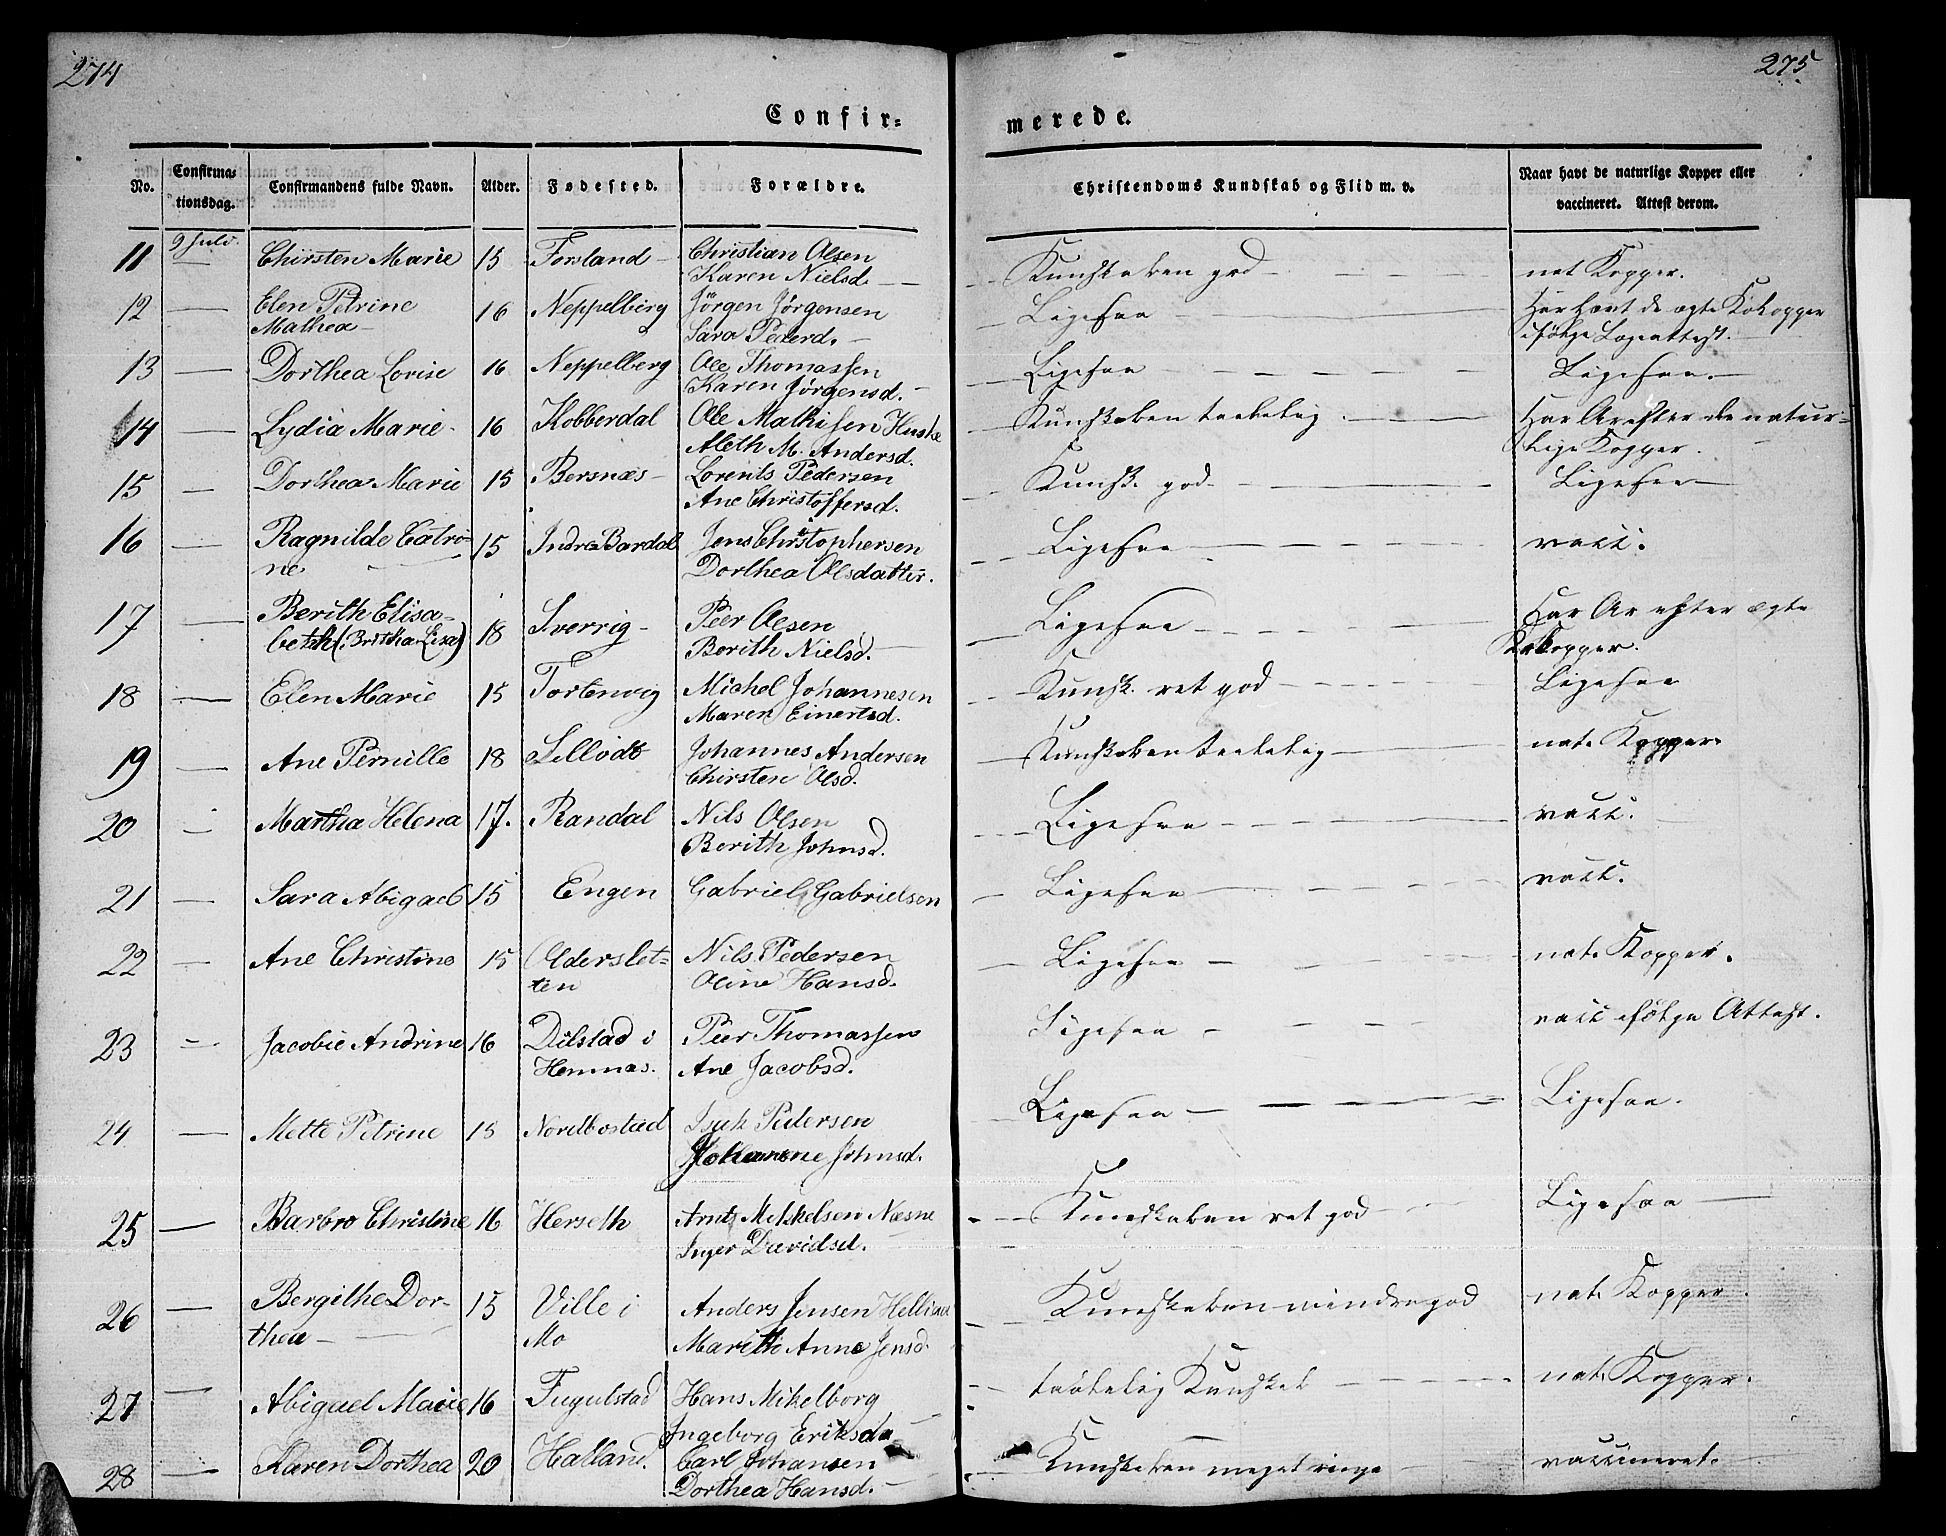 274
275
Confir=
merede.
No.
Confirma=
tionsdag.
Confirmandens fulde Navn.
Alder.
Fødested.
Forældre.
Christendoms Kundskab og Flid m. v.
Naar havt de naturlige Kopper eller
vaccineret. Attest derom.
11 9 Juli. Chirsten Marie 15 Forsland Christian Olsen
Karen Nielsd. Kundskaben god nat Kopper.
12 Elen Petrine 16 Neppelberg Jörgen Jörgensen Ligesaa Har havt de ægte Kokopper
Mathea Sara Pederd. ifølge Lægeattest.
13 Dorthea Lovise 16 Neppelberg Ole Thomassen Ligesaa Ligesaa.
Karen Jörgensd.
14 Lydia Marie 16 Kobberdal Ole Mathisen Huske Kundskaben taalelig Har Ar efter de natur=
Aleth M. Andersd. lige Kopper.
15 Dorthea Marie 15 Bersnæs Lorents Pedersen Kundsk. god Ligesaa
Ane Christoffersd.
16 Ragnilde Catri= 15 Indre Bardal Jens Christophersen Ligesaa vacc.
ne Dorthea Olsdatter.
17 Berith Elisa= 18 Sverrig Peer Olsen Ligesaa Har Ar efter ægte
beth (: Britha Lisa) Berith Nielsd. Kokopper.
18 Elen Marie 15 Fortenvig Michel Johannesen Kundsk. ret god Ligesaa
Maren Einertsd.
19 Ane Pernille 18 Johannes Andersen Kundskaben taalelig nat. Kopper
Chirsten Olsd.
20 Martha Helena 17. Randal Nils Olsen Ligesaa vacc.
Berith Johnsd.
21 Sara Abigael 15 Engen Gabriel Gabrielsen Ligesaa vacc.
22 Ane Christine 15 Olderslet= Nils Pedersen Ligesaa nat. Kopper.
ten Oline Hansd.
23 Jacobie Andrine 16 Dilstad i Peer Thomassen Ligesaa vacc ifölge Attest.
Hemnæs. Ane Jacobsd.
24 Mette Petrine 15 Nordbostad Isak Pedersen Ligesaa Ligesaa.
Johanne Johnsd.
25 Barbro Christine 16 Herseth Arnt Mikkelsen Næsne Kundskaben ret god Ligesaa
Inger Davidsd.
26 Bergithe Dor= 15 Ville i Anders Jensen Kundskaben mindre god nat. Kopper.
thea Mo Marith Anne Jensd.
27 Abigael Marie 16 Fugulstad Hans Mikelborg taalelig Kundskab nat. Kopper.
Ingeborg Eriksd
28 Karen Dorthea 20 Halland. Carl Johansen Kundskaben meget ringe vaccineret.
Dorthea Hansd.